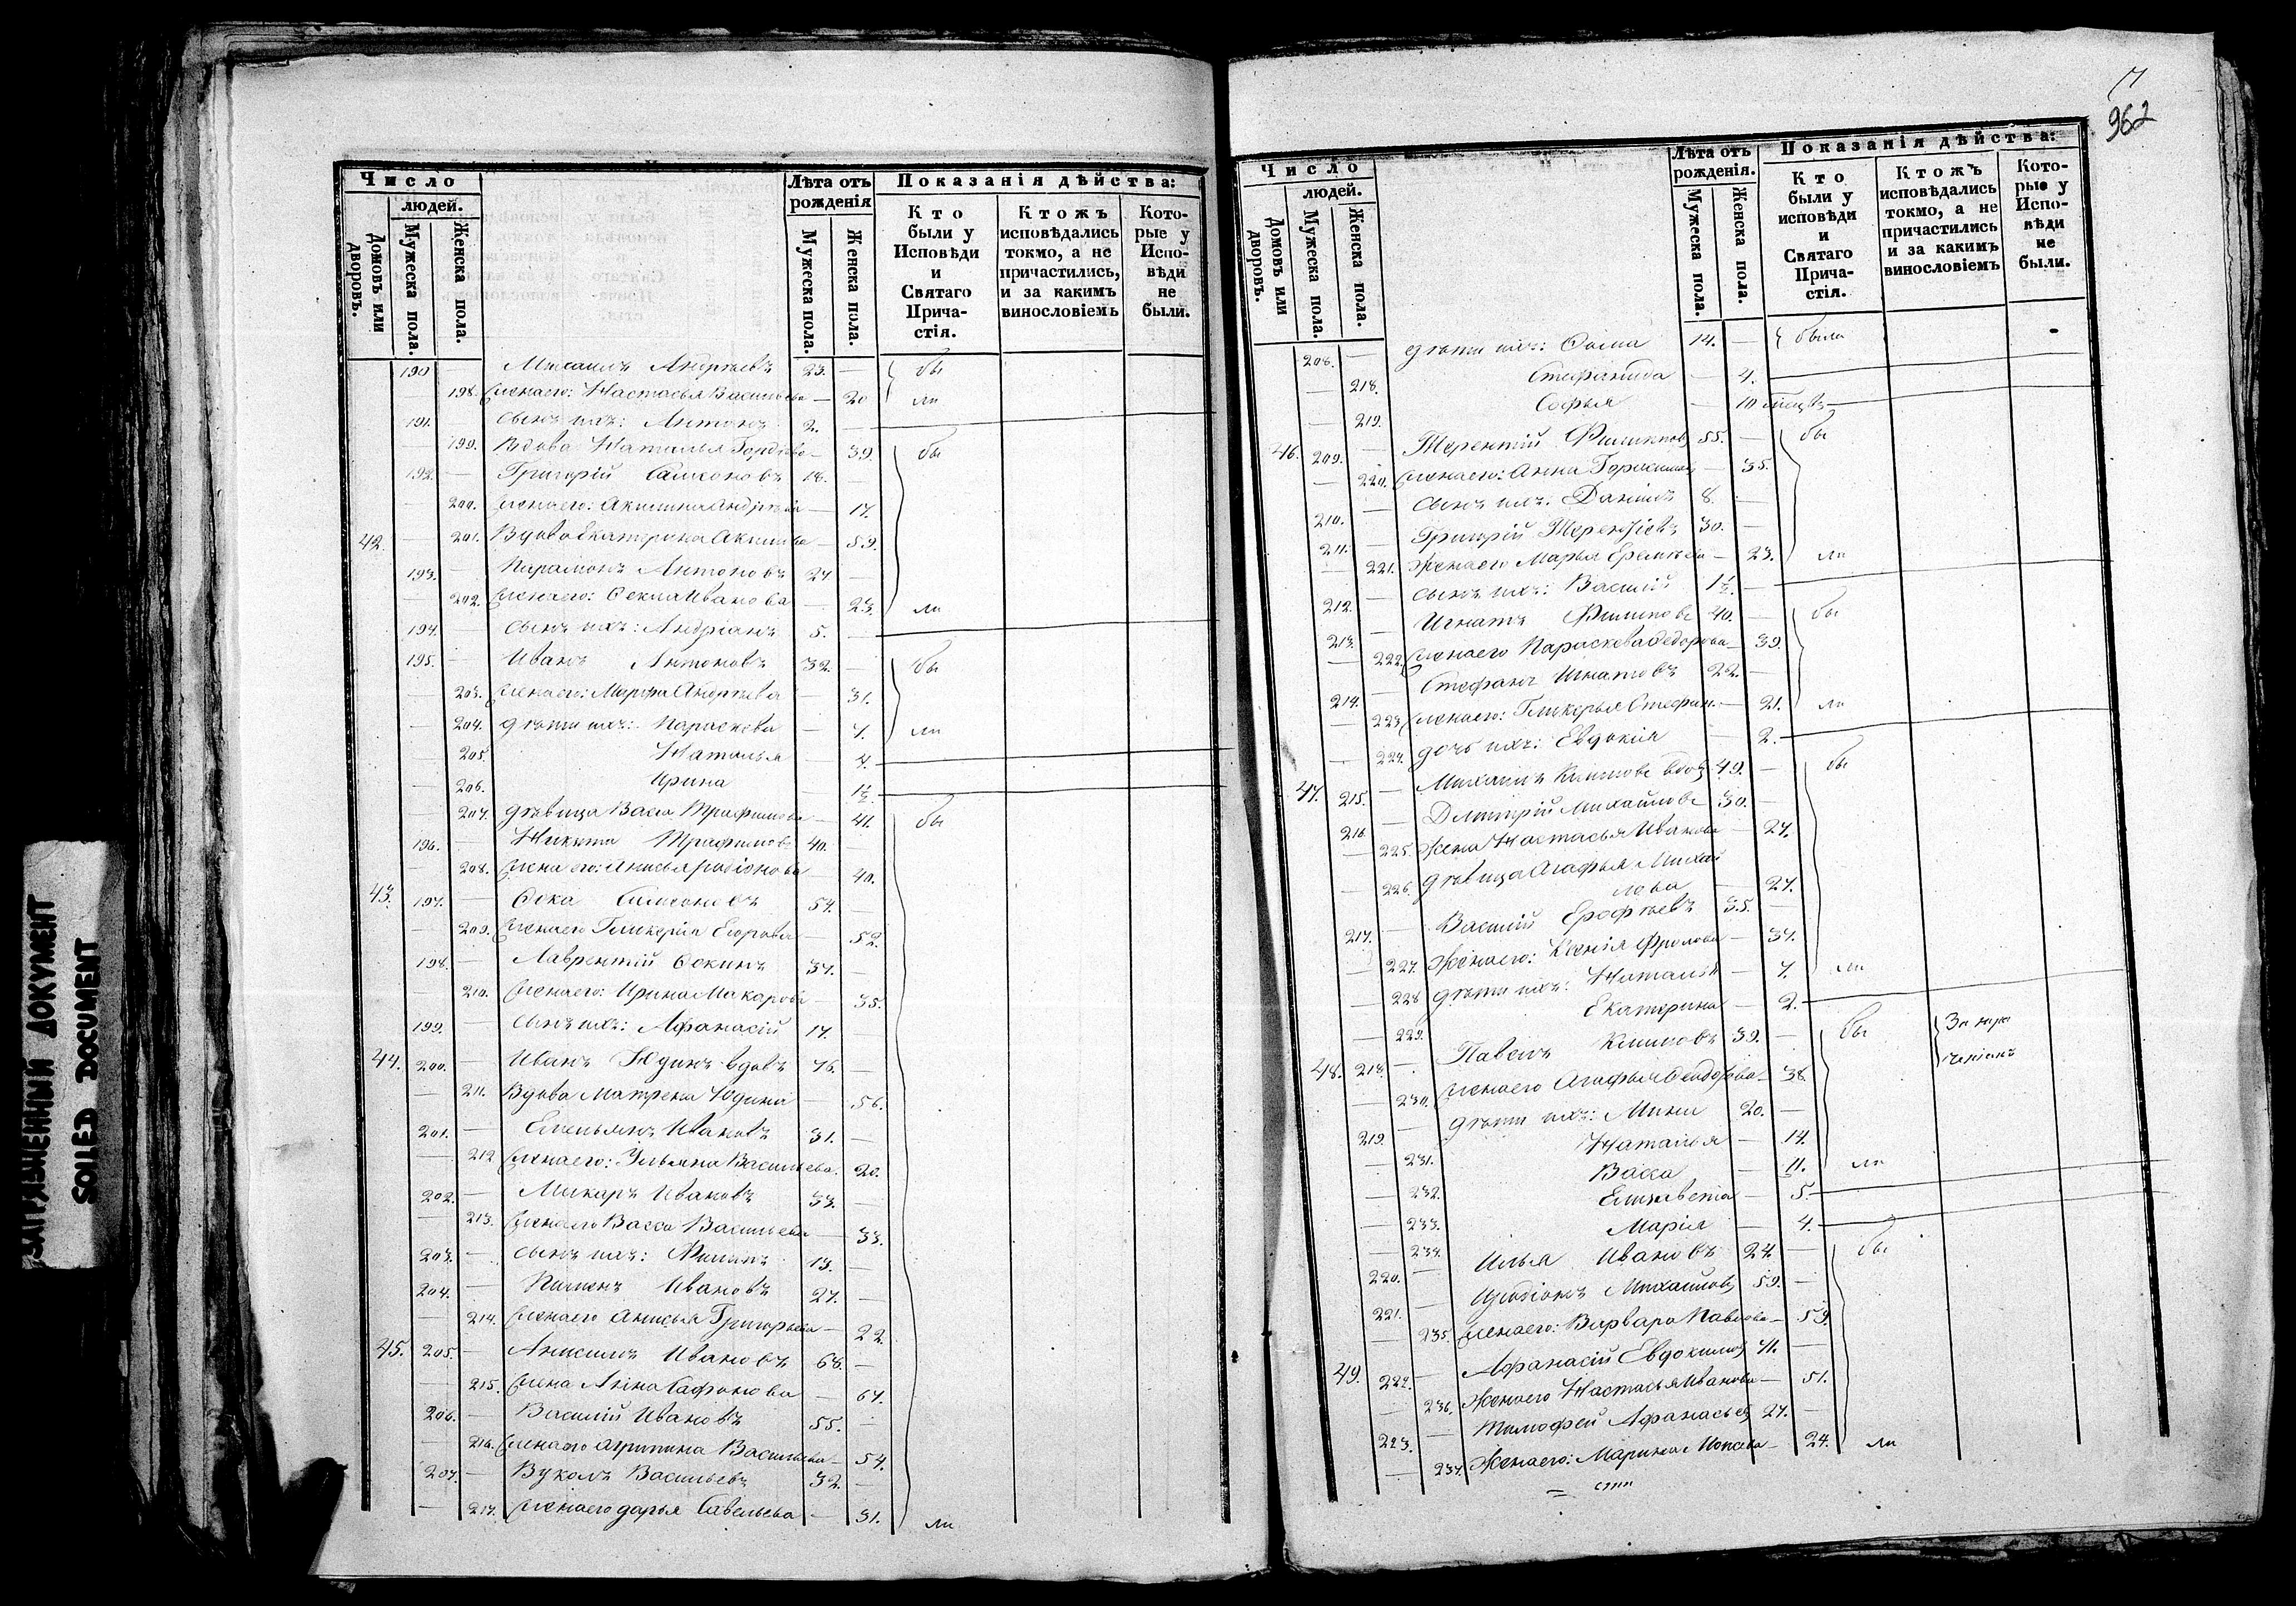 ЗАГРЯЗНЕННЫЙ ДОКУМЕНТ
SOILED DOCUMENT
Число
людей.
Домовъ или дворовъ.
Мужеска пола.
Женска пола.
Лѣта отъ рожденія
Мужеска пола.
Женска пола.
Показанія дѣйства:
Кто были у Исповѣди и Святаго Прича-стія.
Ктожъ исповѣдались токмо, а не причастились, и за какимъ винословіемъ
Кото-рые у Испо-вѣди не были.
190 — Михаилъ Андреевъ 23. — бы
— 198. Жена его: Настасья Васильева — 20 ли
191. сынъ ихъ: Антонъ 2. —
199. Вдова Наталья Гордѣева — 39. бы
192. — Григорій Самсоновъ 18. —
— 200. Жена его: Акилина Андреева — 17.
42. — 201. Вдова Екатерина Акимова — 59.
193. — Парамонъ Антоновъ 27 —
— 202. Жена его: Ѳекла Иванова — 23. ли
194. — сынъ ихъ: Андріанъ 5. —
195. — Иванъ Антоновъ 32. — бы
— 203. Жена его: Марфа Андреева — 31.
— 204. дѣти ихъ: Параскева — 7. ли
— 205. Наталья — 4.
— 206. Ирина — 1½.
— 207. дѣвица Васса Трафимова — 41. бы
196. — Никита Трафимовъ 40. —
— 208. Жена его: Анисья Родіонова — 40.
43. 197. — Ѳока Самсоновъ 54. —
— 209. Жена его Гликерія Егорова — 52.
198. — Лаврентій Ѳокинъ 37. —
— 210. Жена его: Ирина Макарова — 35.
199. — сынъ ихъ: Афанасій 17. —
44. 200. — Иванъ Юдинъ вдовъ 76. —
— 211. Вдова Матрена Юдина — 56.
201. — Емельянъ Ивановъ 31. —
— 212 Жена его: Ульяна Васильева. 20.
202. — Макаръ Ивановъ 33. —
— 213. Жена его Васса Васильева — 33.
203. — сынъ ихъ: Филипъ 13. —
204. — Пименъ Ивановъ 27. —
— 214. Жена его Анисья Григорьева — 22.
45. 205. — Анисимъ Ивановъ 68. —
— 215. Жена Анна Сафонова — 67.
206. — Василій Ивановъ 55. —
— 216. Жена его Агрипина Васильева — 54.
207. — Вуколъ Васильевъ 32. —
— 217. Жена его Дарья Савельева — 31. ли
962
Число
людей.
Домовъ или дворовъ.
Мужеска пола.
Женска пола.
Лѣта отъ рожденія.
Мужеска пола.
Женска пола.
Показанія дѣйства:
Кто были у исповѣди и Святаго Прича-стія.
Ктожъ исповѣдались токмо, а не причастились и за какимъ винословіемъ
Кото-рые у Испо-вѣди не были.
208. — дѣти ихъ: Ѳома 14. — были
— 218. Стефанида — 4.
— 219. Софья — 10 мѣсцъ
46. 209. — Терентій Филиповъ 55. — бы
— 220. Жена его: Анна Герасимова — 35.
210. — сынъ ихъ: Даніилъ 8. —
211. — Григорій Терентіевъ 30. —
— 221. Жена его Марья Еремѣева — 23. ли
212. — сынъ ихъ: Василій 1½. —
213. — Игнатъ Филиповъ 40. — бы
— 222. Жена его Параскева Федорова — 39.
214. — Стефанъ Игнатовъ 22. —
— 223. Жена его: Гликерья Стефан. — 21. ли
— 224. дочь ихъ: Евдокія — 2.
47. 215. — Михаилъ Климовъ вдов. 49. — бы
216. — Дмитрій Михайловъ 30. —
— 225. Жена Настасья Иванова — 27.
— 226. дѣвица Агафья Михай
лова — 27.
217. — Василій Ерофѣевъ 35. —
— 227. Жена его: Ксенія Фролова — 37.
— 228 дѣти ихъ: Наталія — 7. ли
— 229. Екатерина — 2.
48. 218. — Павелъ Климовъ 39. — бы
— 230. Жена его Агафья Ѳеодорова — 38
219. — дѣти ихъ: Мина 20. —
— 231. Наталья — 14.
— 232. Васса — 11. ли
— 233. Елисавета — 5.
— 234. Марія — 4.
220. — Илья Ивановъ 24. — бы
221. — Иродіонъ Михайловъ 59. —
— 235. Жена его: Варвара Павлова — 59
49. 222. — Афанасій Евдокимов 41. —
— 236. Жена его Настасья Иванова — 51.
223. — Тимофей Афанасьев 27. —
— 237. Жена его: Марина — 24. ли